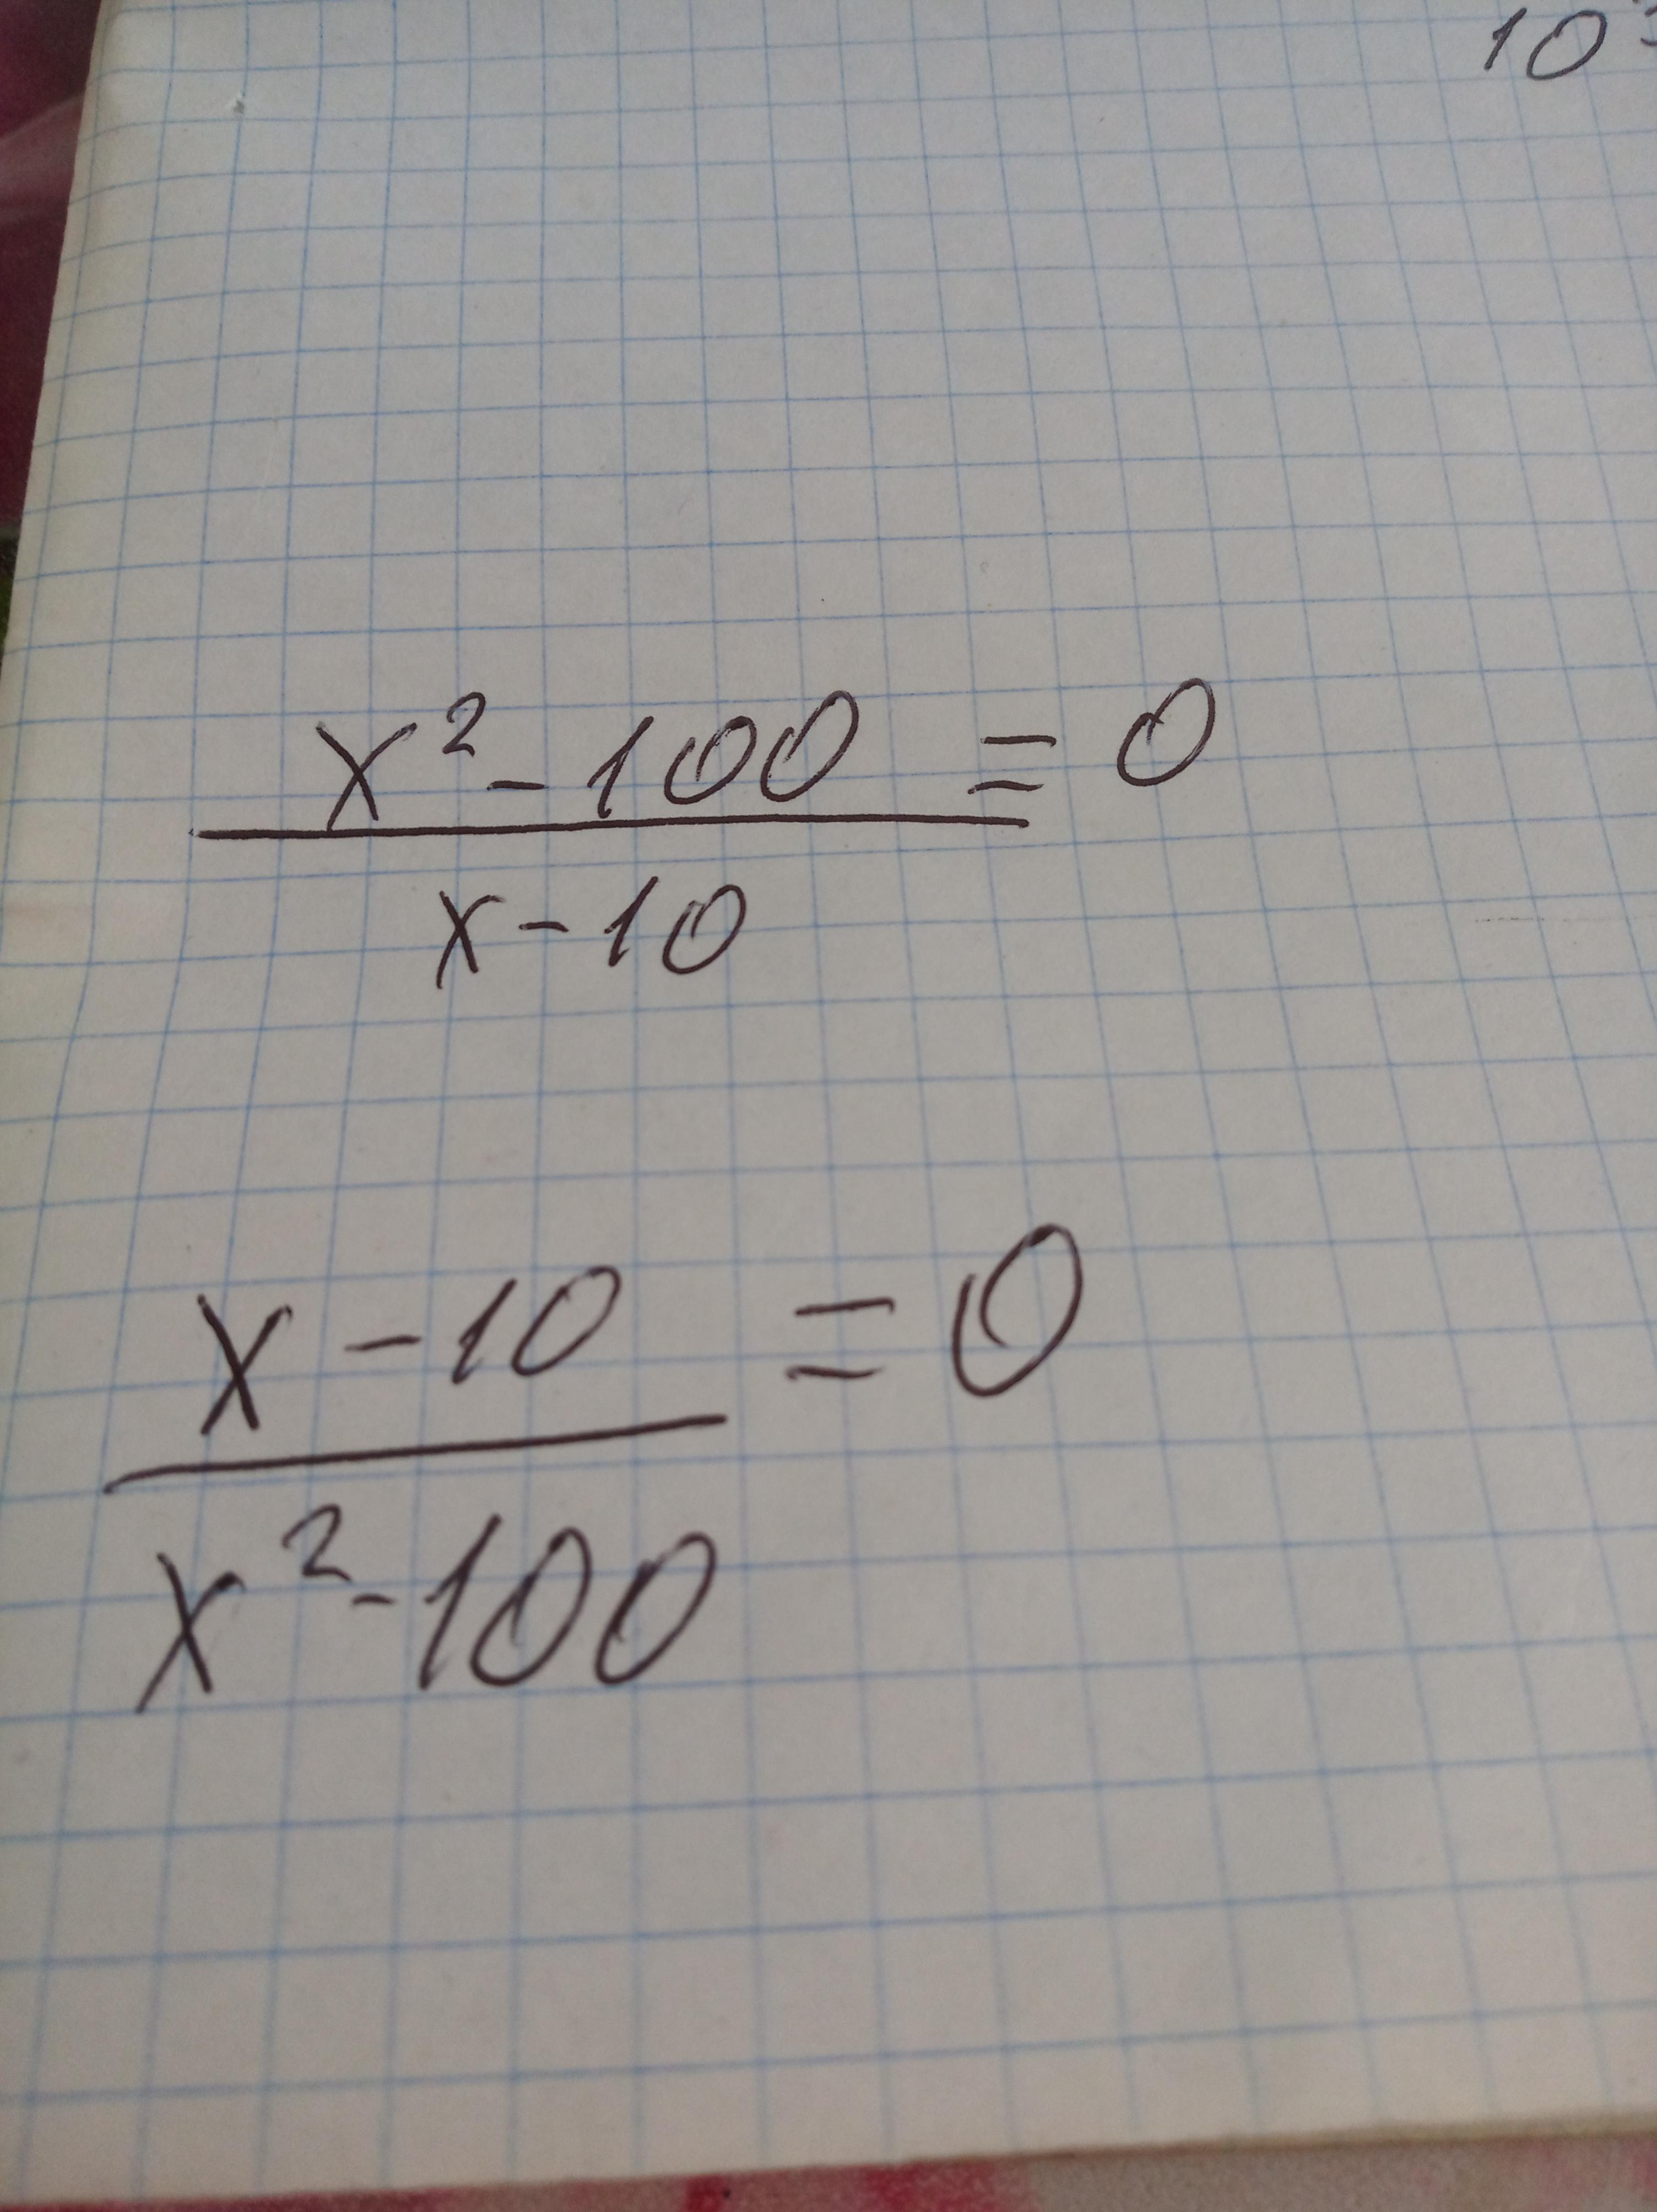 10
x² - 100 = 0
x - 10
x - 10 = 0
x² - 100